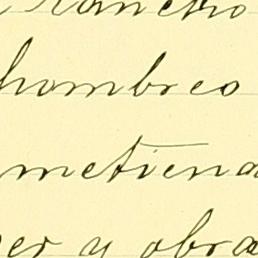 Rancho
hombres
metiend
er y obra